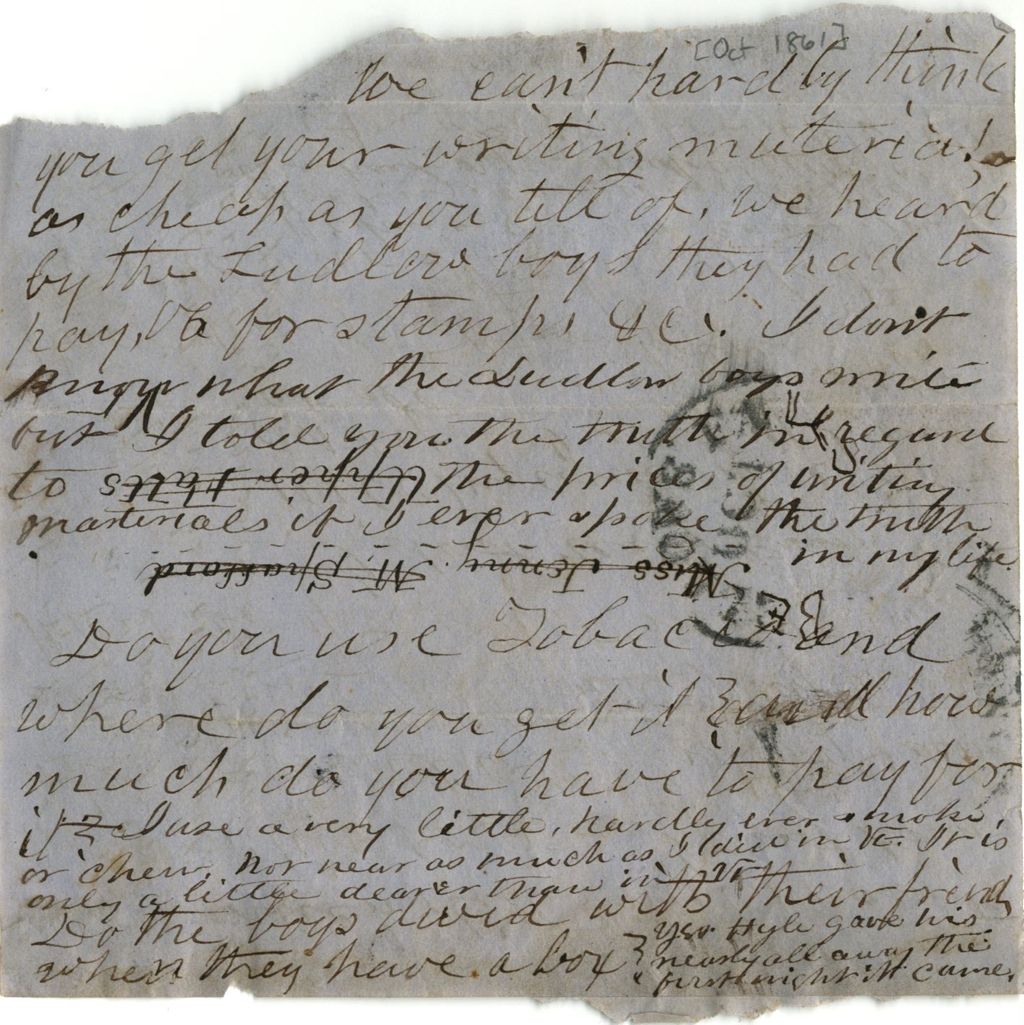 [Oct 1861]
We can't hardly think
you get your writing material
as cheap as you tell of, we heard
by the Ludlow boys they had to
pay, 06 for stamps &c. I don't
know what the Ludlow boys write
but I told you the truth in regard
to Upper Mills the prices of writing
materials if I ever spoke the truth
in my life.
Miss Jenny M. Spafford
Do you use Tobacco and
where do you get it? and how
much do you have to pay for
it? I use a very little, hardly ever smoke,
or chew, nor near as much as I did in Vt. It is
only a little dearer than in Vt
Do the boys divid with their friends
when they have a box?
yes. Hyle gave his
nearly all away the
first night it came.